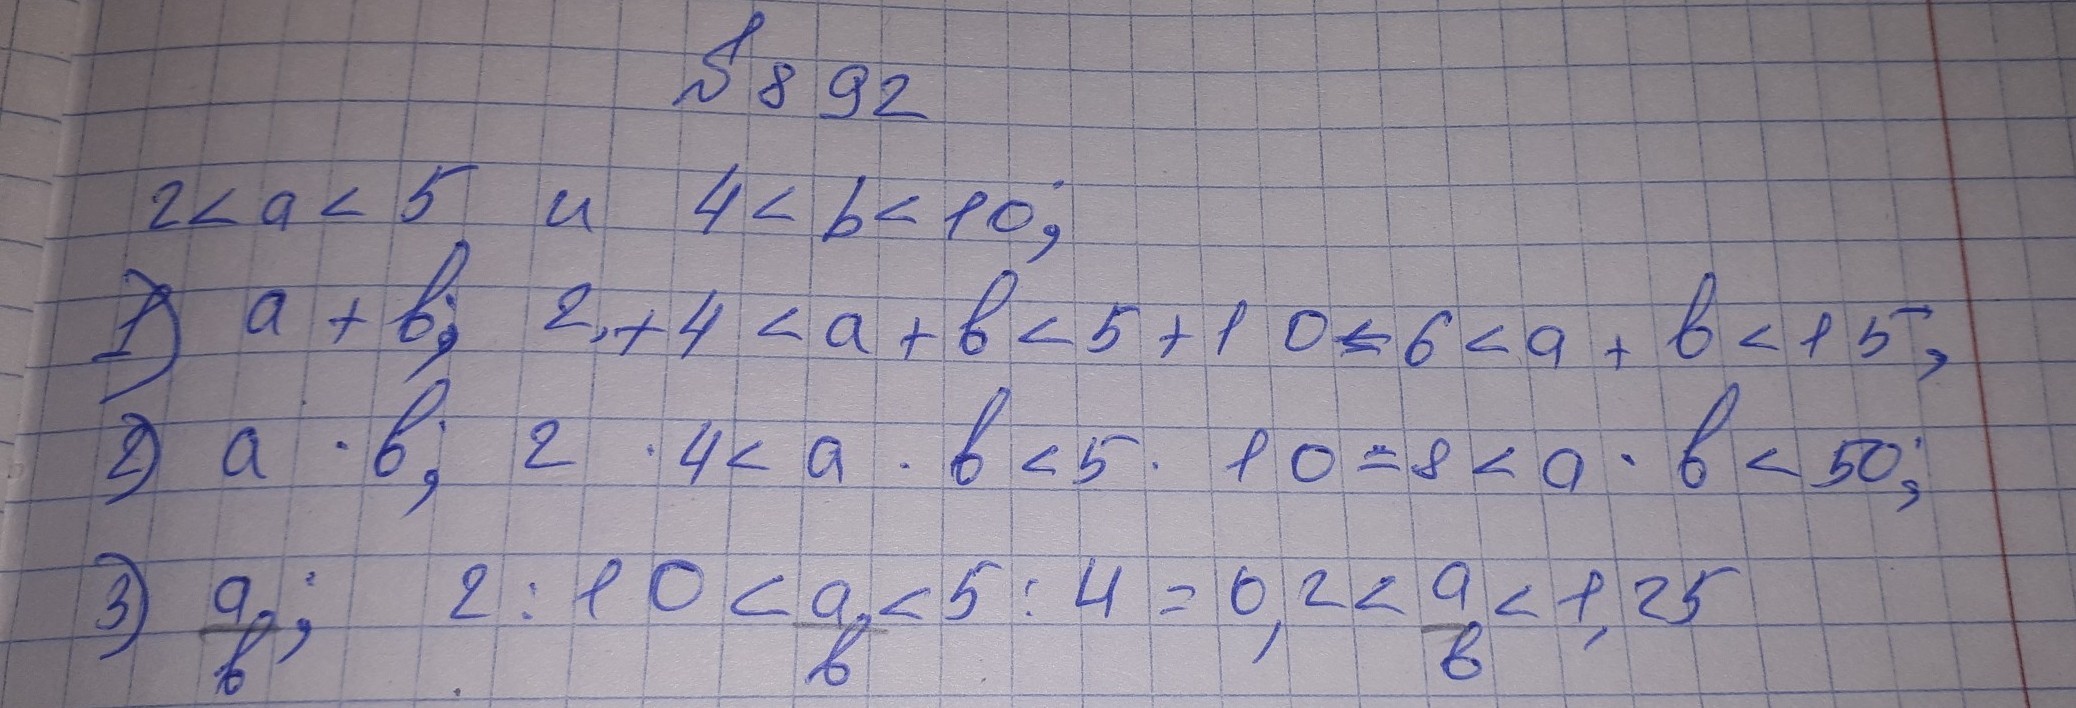 № 892
2 < a < 5 и 4 < b < 10;
1) a + b; 2 + 4 < a + b < 5 + 10 = 6 < a + b < 15;
2) a · b; 2 · 4 < a · b < 5 · 10 = 8 < a · b < 50;
3) a/b; 2 : 10 < a/b < 5 : 4 = 0,2 < a/b < 1,25